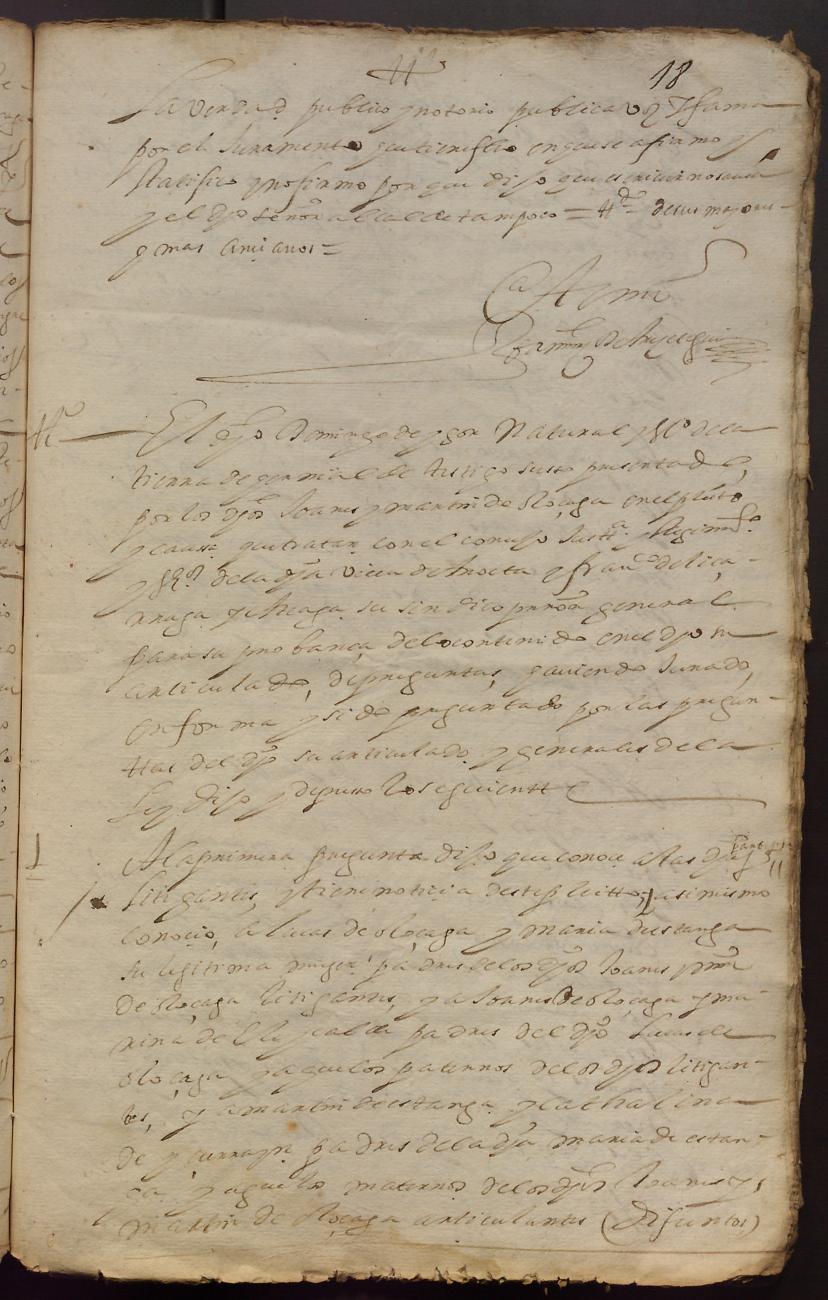 18
La verdad publico y notorio publica voz y fama
por el Juramento que tiene fho en que se afirmo y
Ratifico y no firmo por que dijo que escrivir no savia
y el dho señor alcalde tampoco = tº de sus mayores
y mas ancianos =
Ante mi
El dho Domingo de ygor Natural y vº de la
tierra de testigo susso presentado
por los dhos Joanes y martin de oloçaga en el pleito
y caussa que tratan con el conzejo Justª y Regimtº
y vºs de la dha villa de y franº de liça-
rraga y su sindico procor general
para su probança de lo contenido en el dho su
articulado, de preguntas, y aviendo Jurado
en forma y sido preguntado por las pregun-
ttas del dho su articulado y generales de la
Ley dijo y depusso lo seguiente
1
A la primera pregunta dijo que conoce a las dhas partes
litigantes, y tiene noticia deste pleitto, y asimismo
conocio, a lucas de oloçaga y maria destanga
su legitima muger padres de los dhos Joanes y mrn
de oloçaga litigantes, y a Joanes de oloçaga y ma-
rina de Elyçalde padres del dho Lucas de
oloçaga y aguelos paternos de los dhos litigan-
tes, y a martin de estanga y cathalina
de padres de la dha maria de estan-
ga y aguelos maternos de los dhos Joanes y
martin de oloçaga articulantes (Difuntos)